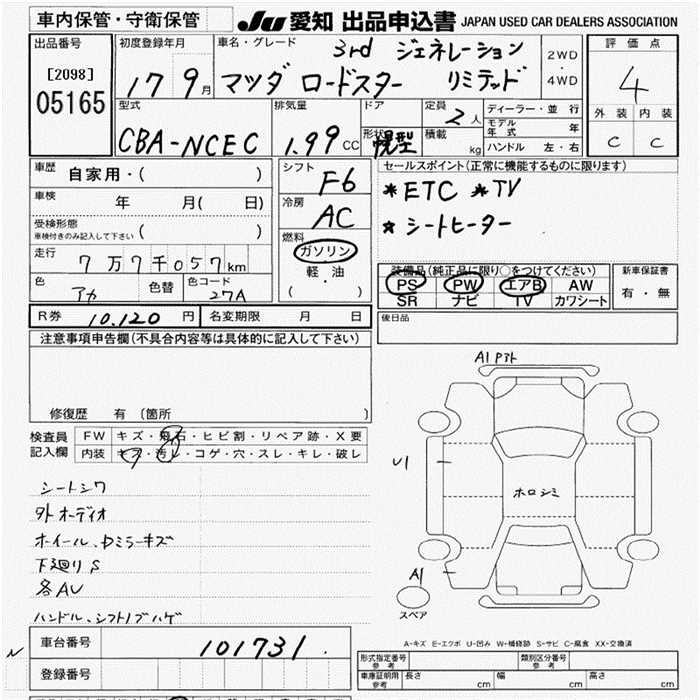 車内保管・守衛保管 JU 愛知 出品申込書 JAPAN USED CAR DEALERS ASSOCIATION
出品番号 初度登録年月 車名・グレード 3rd ジェネレーション 2WD・4WD 評価点
[2098] 17 9月 マツダ ロードスター リミテッド 4
05165 型式 排気量 ドア 定員 2人 ディーラー・並行 外装 内装
形状 幌型 積載 kg モデル年式 年
CBA-NCEC 1.99cc ハンドル 左・右 C C
車歴 自家用・( ) シフト F6 セールスポイント(正常に機能するものに限ります)
車検 年 月( 日) 冷房 AC *ETC *TV
受検形態 ( ) *シートヒーター
車検付きのみ記入して下さい 燃料
走行 7万7千057km ガソリン 装備品(純正品に限り○をつけてください) 新車保証書
色 アカ 色替 色コード 27A 軽・油 PS PW エアB AW 有・無
( ) SR ナビ TV カワシート
R券 10.120円 名変期限 月 日 後日品
注意事項申告欄(不具合内容等は具体的に記入して下さい)
A1 P3ト
修復歴 有 (箇所 )
検査員 FW キズ・飛石・ヒビ割・リペア跡・X要
記入欄 内装 キズ・汚レ・コゲ・穴・スレ・キレ・破レ
U1
シートシワ
ホロシミ
外オーディオ
ホイール、Dミラーキズ
下廻りS
A1
各AU
スペア
ハンドル、シフトノブハゲ
A-キズ E-エクボ U-凹み W-補修跡 S-サビ C-腐食 XX-交換済
N 車台番号 101731.
形式指定番号 参考 類別区分番号 参考
登録番号 車庫証明用 参考 長さ cm 幅 cm 高さ cm